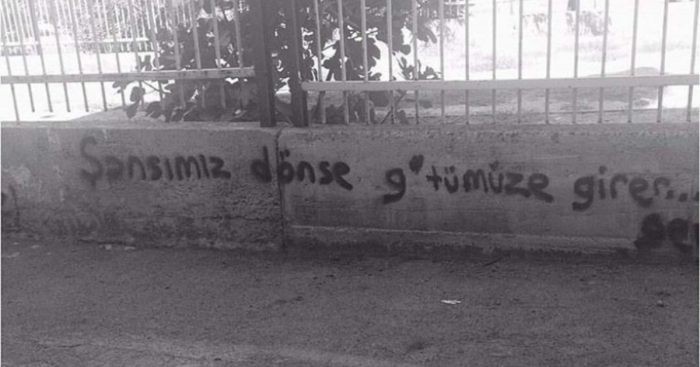 Şansımız dönse g*tümüze girer...